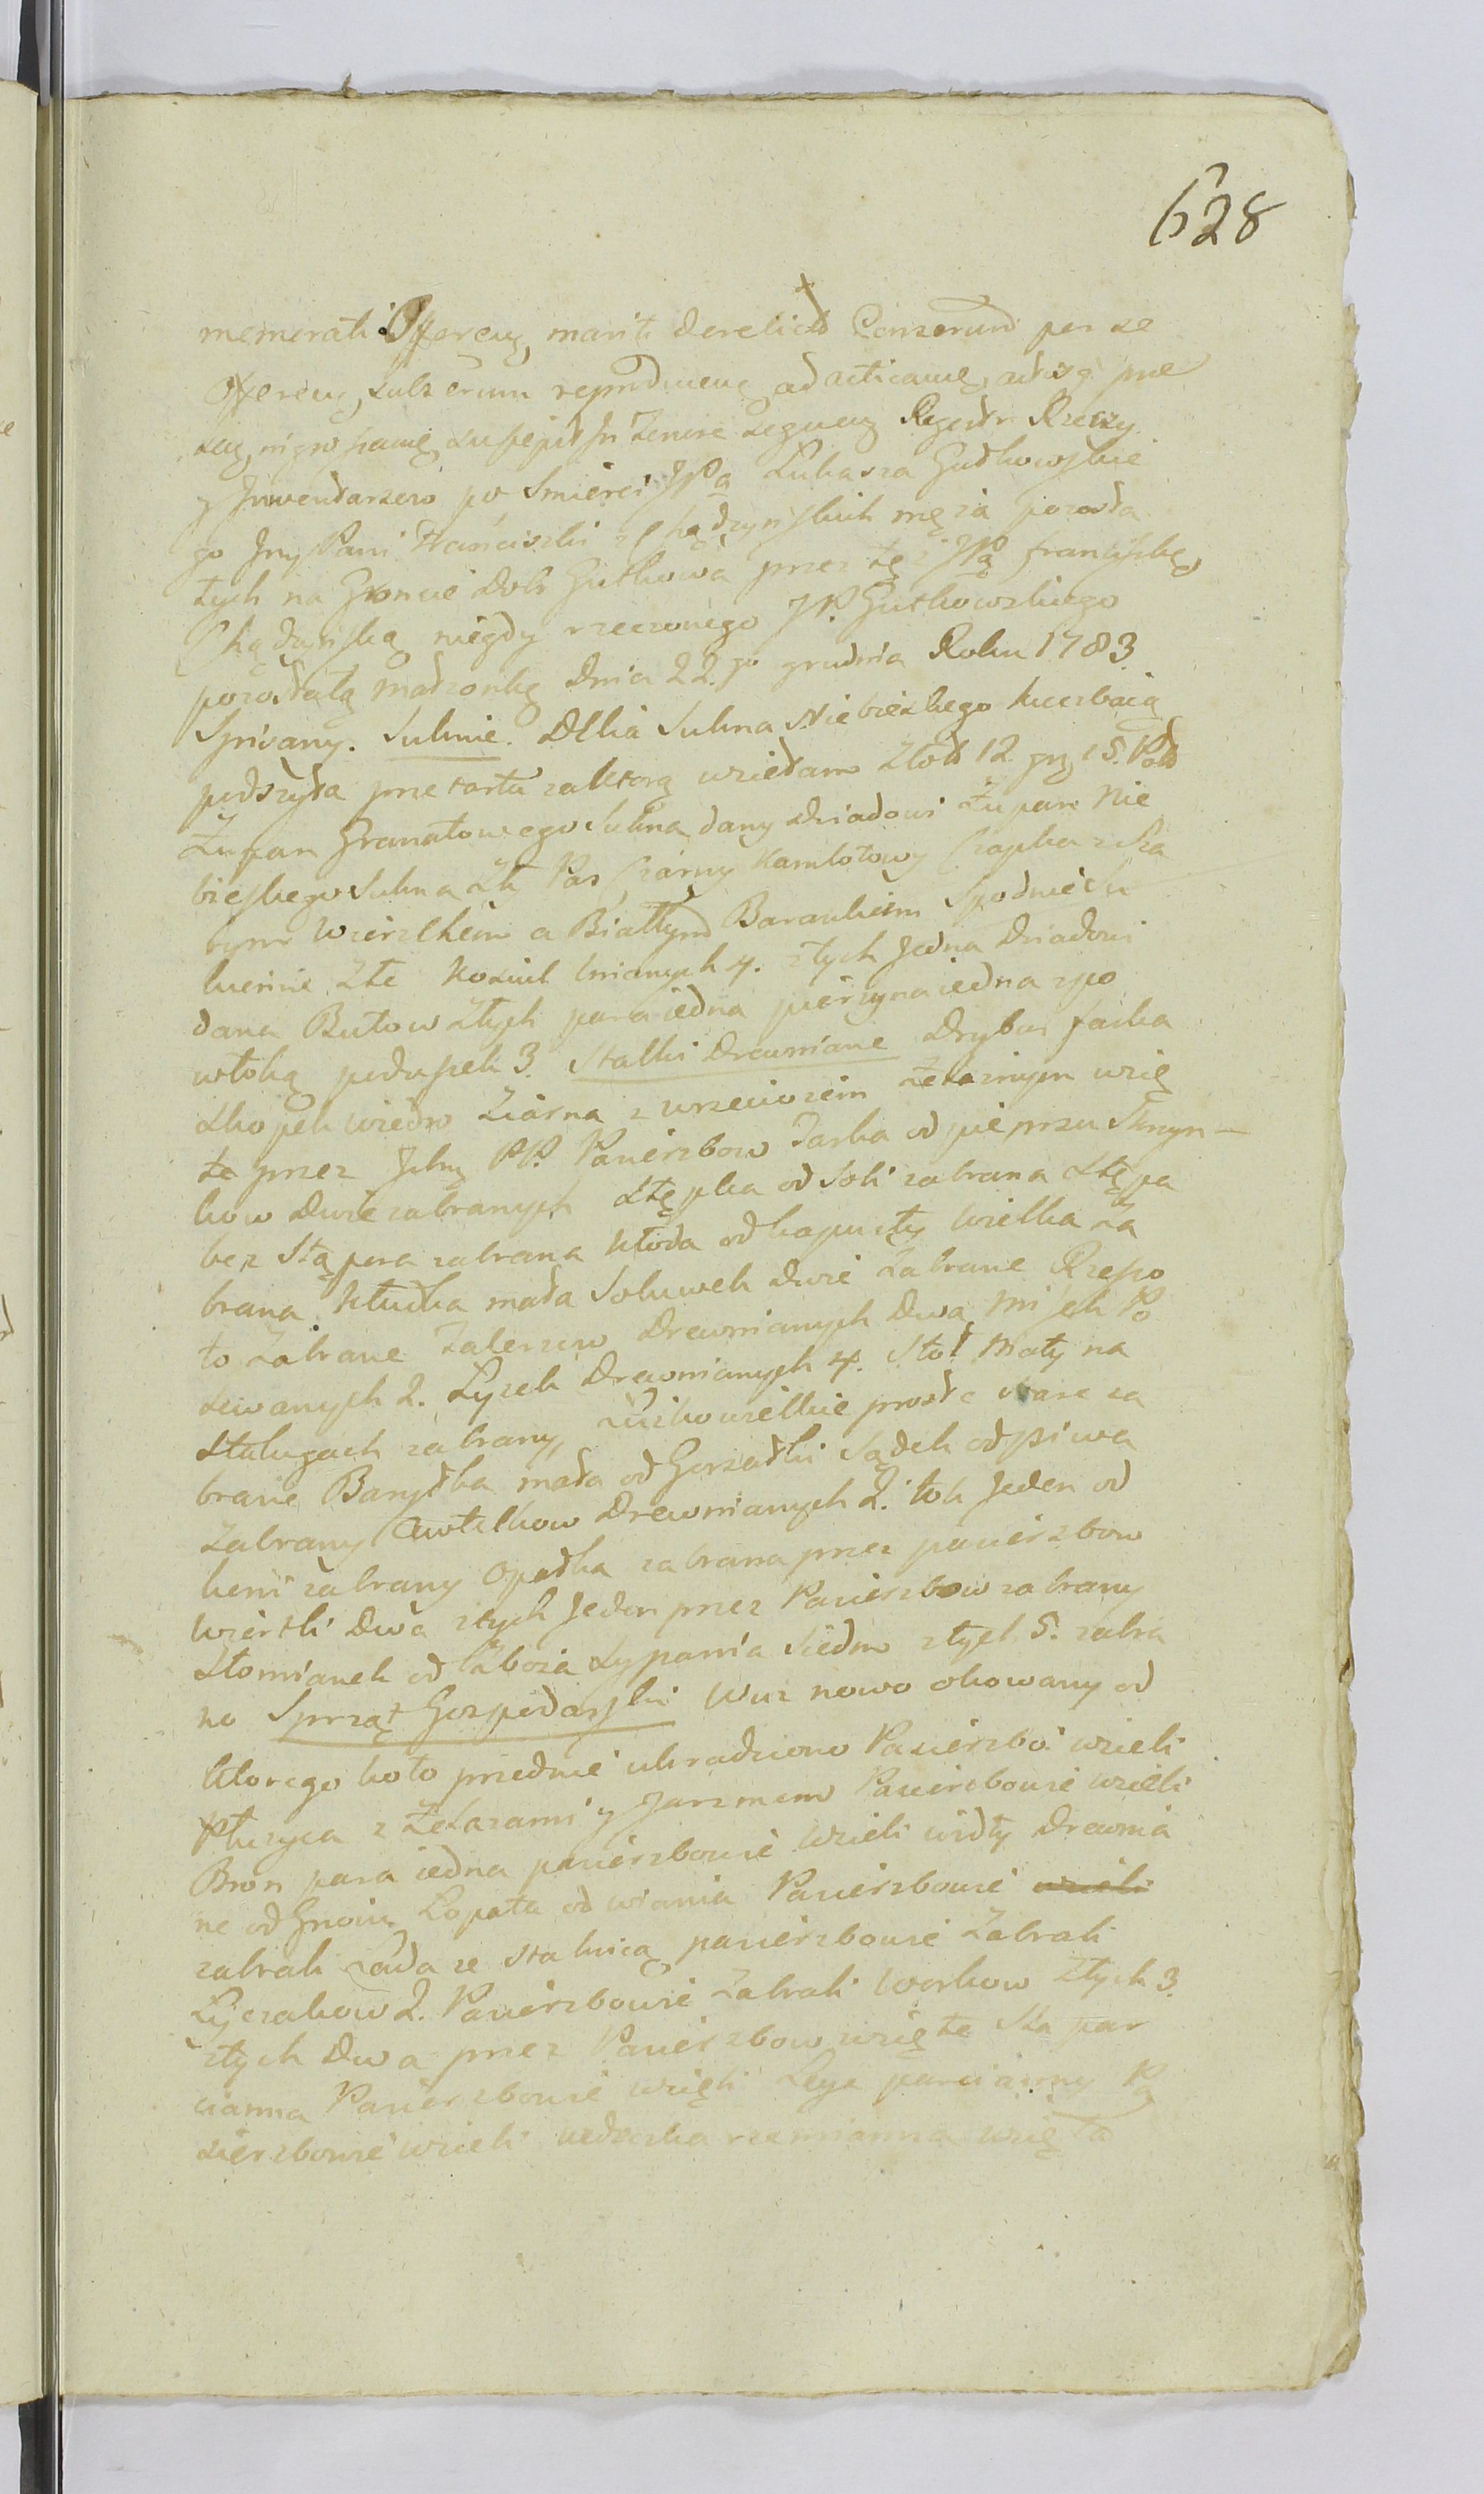 628
memerati Offereng, mariti derelict Censorum per se
Offereng, subserum reproducens ad acticamg, ad
ingrossamg suscepit In Tenore sequeng Regestr Rzeczy
y Inwentarzew po Smierci JPa Łukasza Gudkowskie
go Jmy Pani Franciszki z Chądzyńskich męża pozosta
łych na Groncie Dobr Gutkowa przez tę JPą franciszkę
Chądzyńską niegdy rzeczonego JP. Gutkowskiego
pozostałą małzonkę Dnia 22go grudnia Roku 1783
Spisany. Suknie. Dellia Sukna Niebieskiego kuczbaią
podszyta przetarta za ktorą wziełam Złott 12 gr 15.
Zupan Granatowego Sukna dany dziadowi Żupan Nie
bieskiego Sukna Zły Pas Czarny kamlotowy Czapka z Sza
rym Wierzchem a Białłym Barankiem Spodnie Su
kienne Złe Koszul lnianych 4. z tych Jedna Dziadowi
dana Butow Złych para iedna pierzyna iedna z po
włoką poduszek 3. Statki Drewniane Drybus faska
Skopek wiedro Żiarna z wrzeciozem Żelaznym wzię
te przez Ichmę PP. Pacierzbow Tarka od pieprzu Skrzyn
kow dwie zabranych Stępka od Soli zabrana Stępa
bez Stąpora zabrana kłoda od kapusty Wielka Za
brana kłutka mała Sokuwek dwie Zabrane Rzepo
to Zabrane Talerzuw Drewnianych Dwa Misek Po
lewanych 2. Łyzek Drewnianych 4. Stoł Mały na
Stalugach zabrany, Łużko wielkie proste stare za
brane Baryłka mała od Gorzałki Sądek od piwa
Zabrany Cwtelkow Drewnianych 2. tok Jeden od
koni zabrany Opałka zabrana przez pacierzbow
Wiertli Dwa z tych Jeden przez Pacierzbow zabrany
Słomianek od Zboza Sypania Siedm z tych 5. zabra
no Sprząt Gospodarski Wuz nowo okowany od
ktorego koło przednie ukradziono Pacierzbo wzieli
Płużyca z Żelazami y Jarzmem Pacierzbowie wzieli
Bron para iedna pacierzbowie wzieli widły Drewnia
ne od Gnoiu Łopata od wiania Pacierzbowie wzieli
zabrali Lada ze stalnicą pacierzbowie Zabrali
Łyczakow 2. Pacierzbowie Zabrali Workow Złych 3.
z tych Dwa przez Pacierzbow wzięte Sla par
cianna Pacierzbowie wzieli Leyc parcianny Pa
cierzbowie wzieli uzdeczka rzemianna wzięta